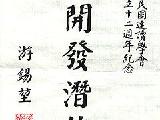 民國速讀學會
立十二週年紀念
開發潛
游錫堃